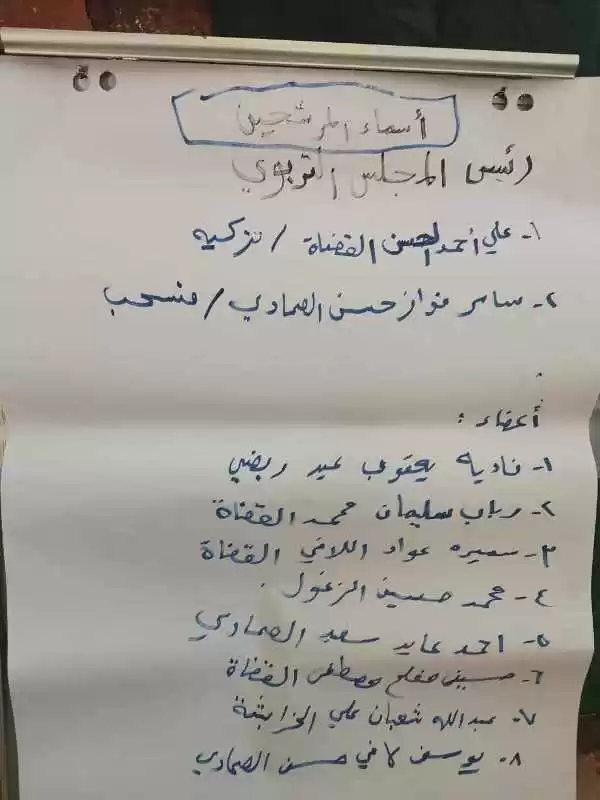 أسماء المرشحين
رئيس المجلس التربوي
١- علي أحمد الحسن القضاة / تزكيه
٢- سامر فواز حسن الصمادي / منسحب
أعضاء :
١- ناديه يعقوب عيد ربضي
٢- رباب سليمان محمد القضاة
٣- سميره عواد اللافي القضاة
٤- محمد حسين الزغول
٥- احمد عايد سعد الصمادي
٦- حسين مفلح مصطفى القضاة
٧- عبدالله شعبان علي الخزابثة
٨- يوسف كافي حسن الصمادي